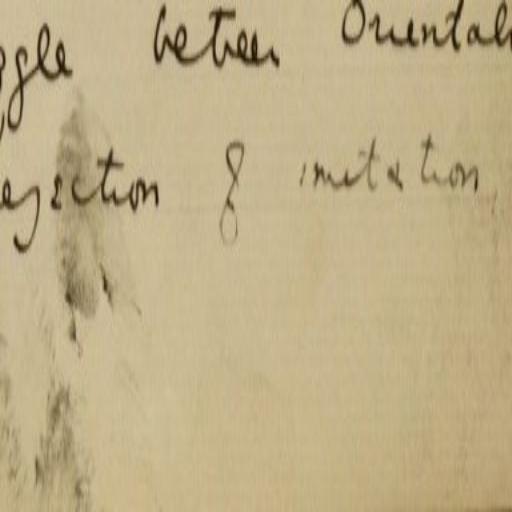 ggle between Oriental
ejection of imitation